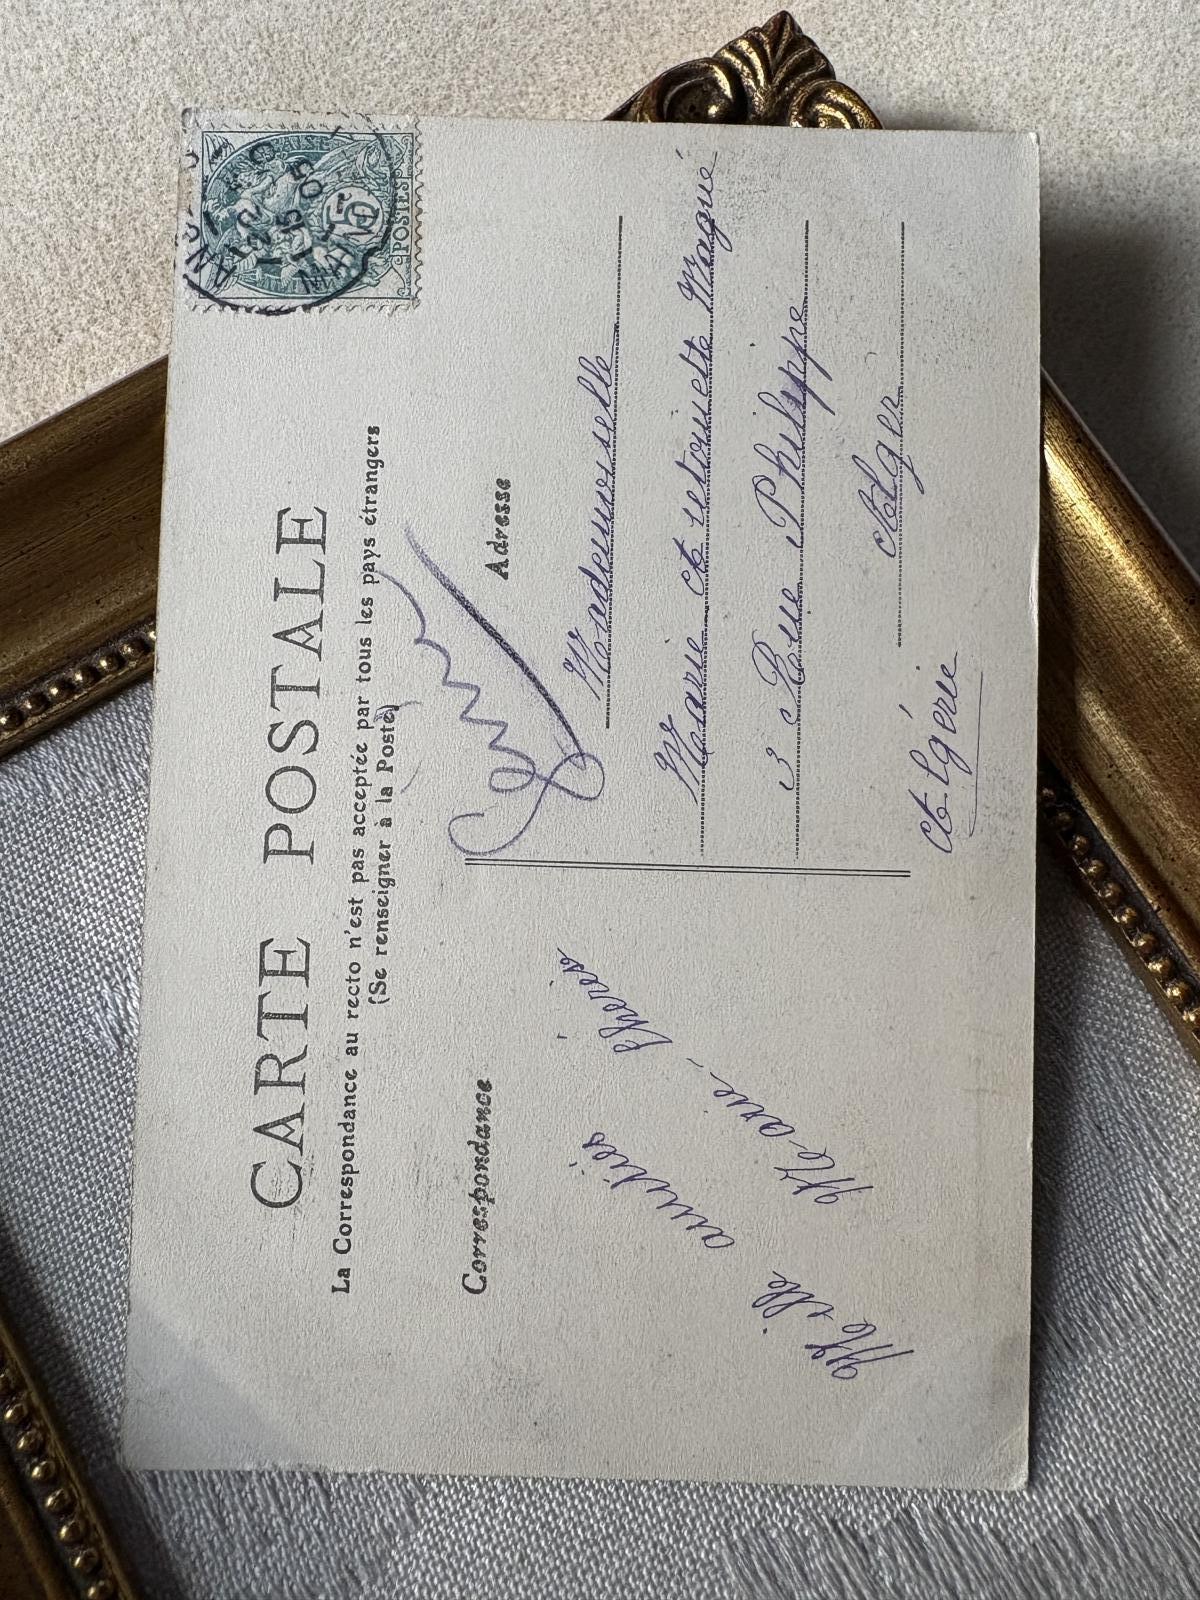 CARTE POSTALE
La Correspondance au recto n'est pas acceptée par tous les pays étrangers
(Se renseigner à la Poste)
POSTES
5
15
05
Correspondance
Mille amitiés
Marie, Chérie
Adresse
Mademoiselle
Marie et
3 Rue Philippe
Alger
Algérie